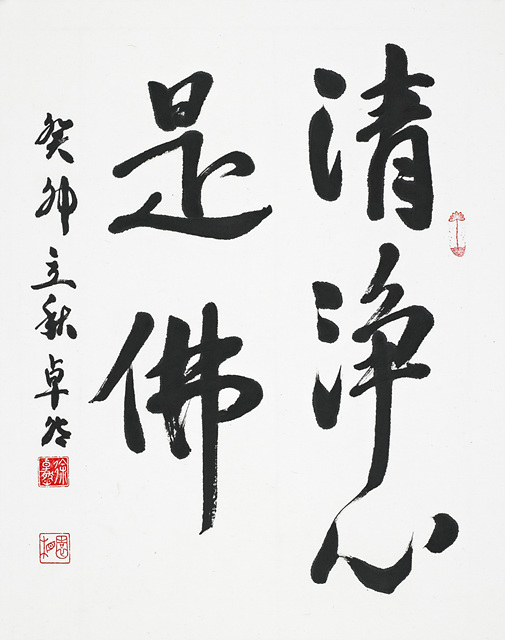 清浄心
是佛
癸卯立秋卓然